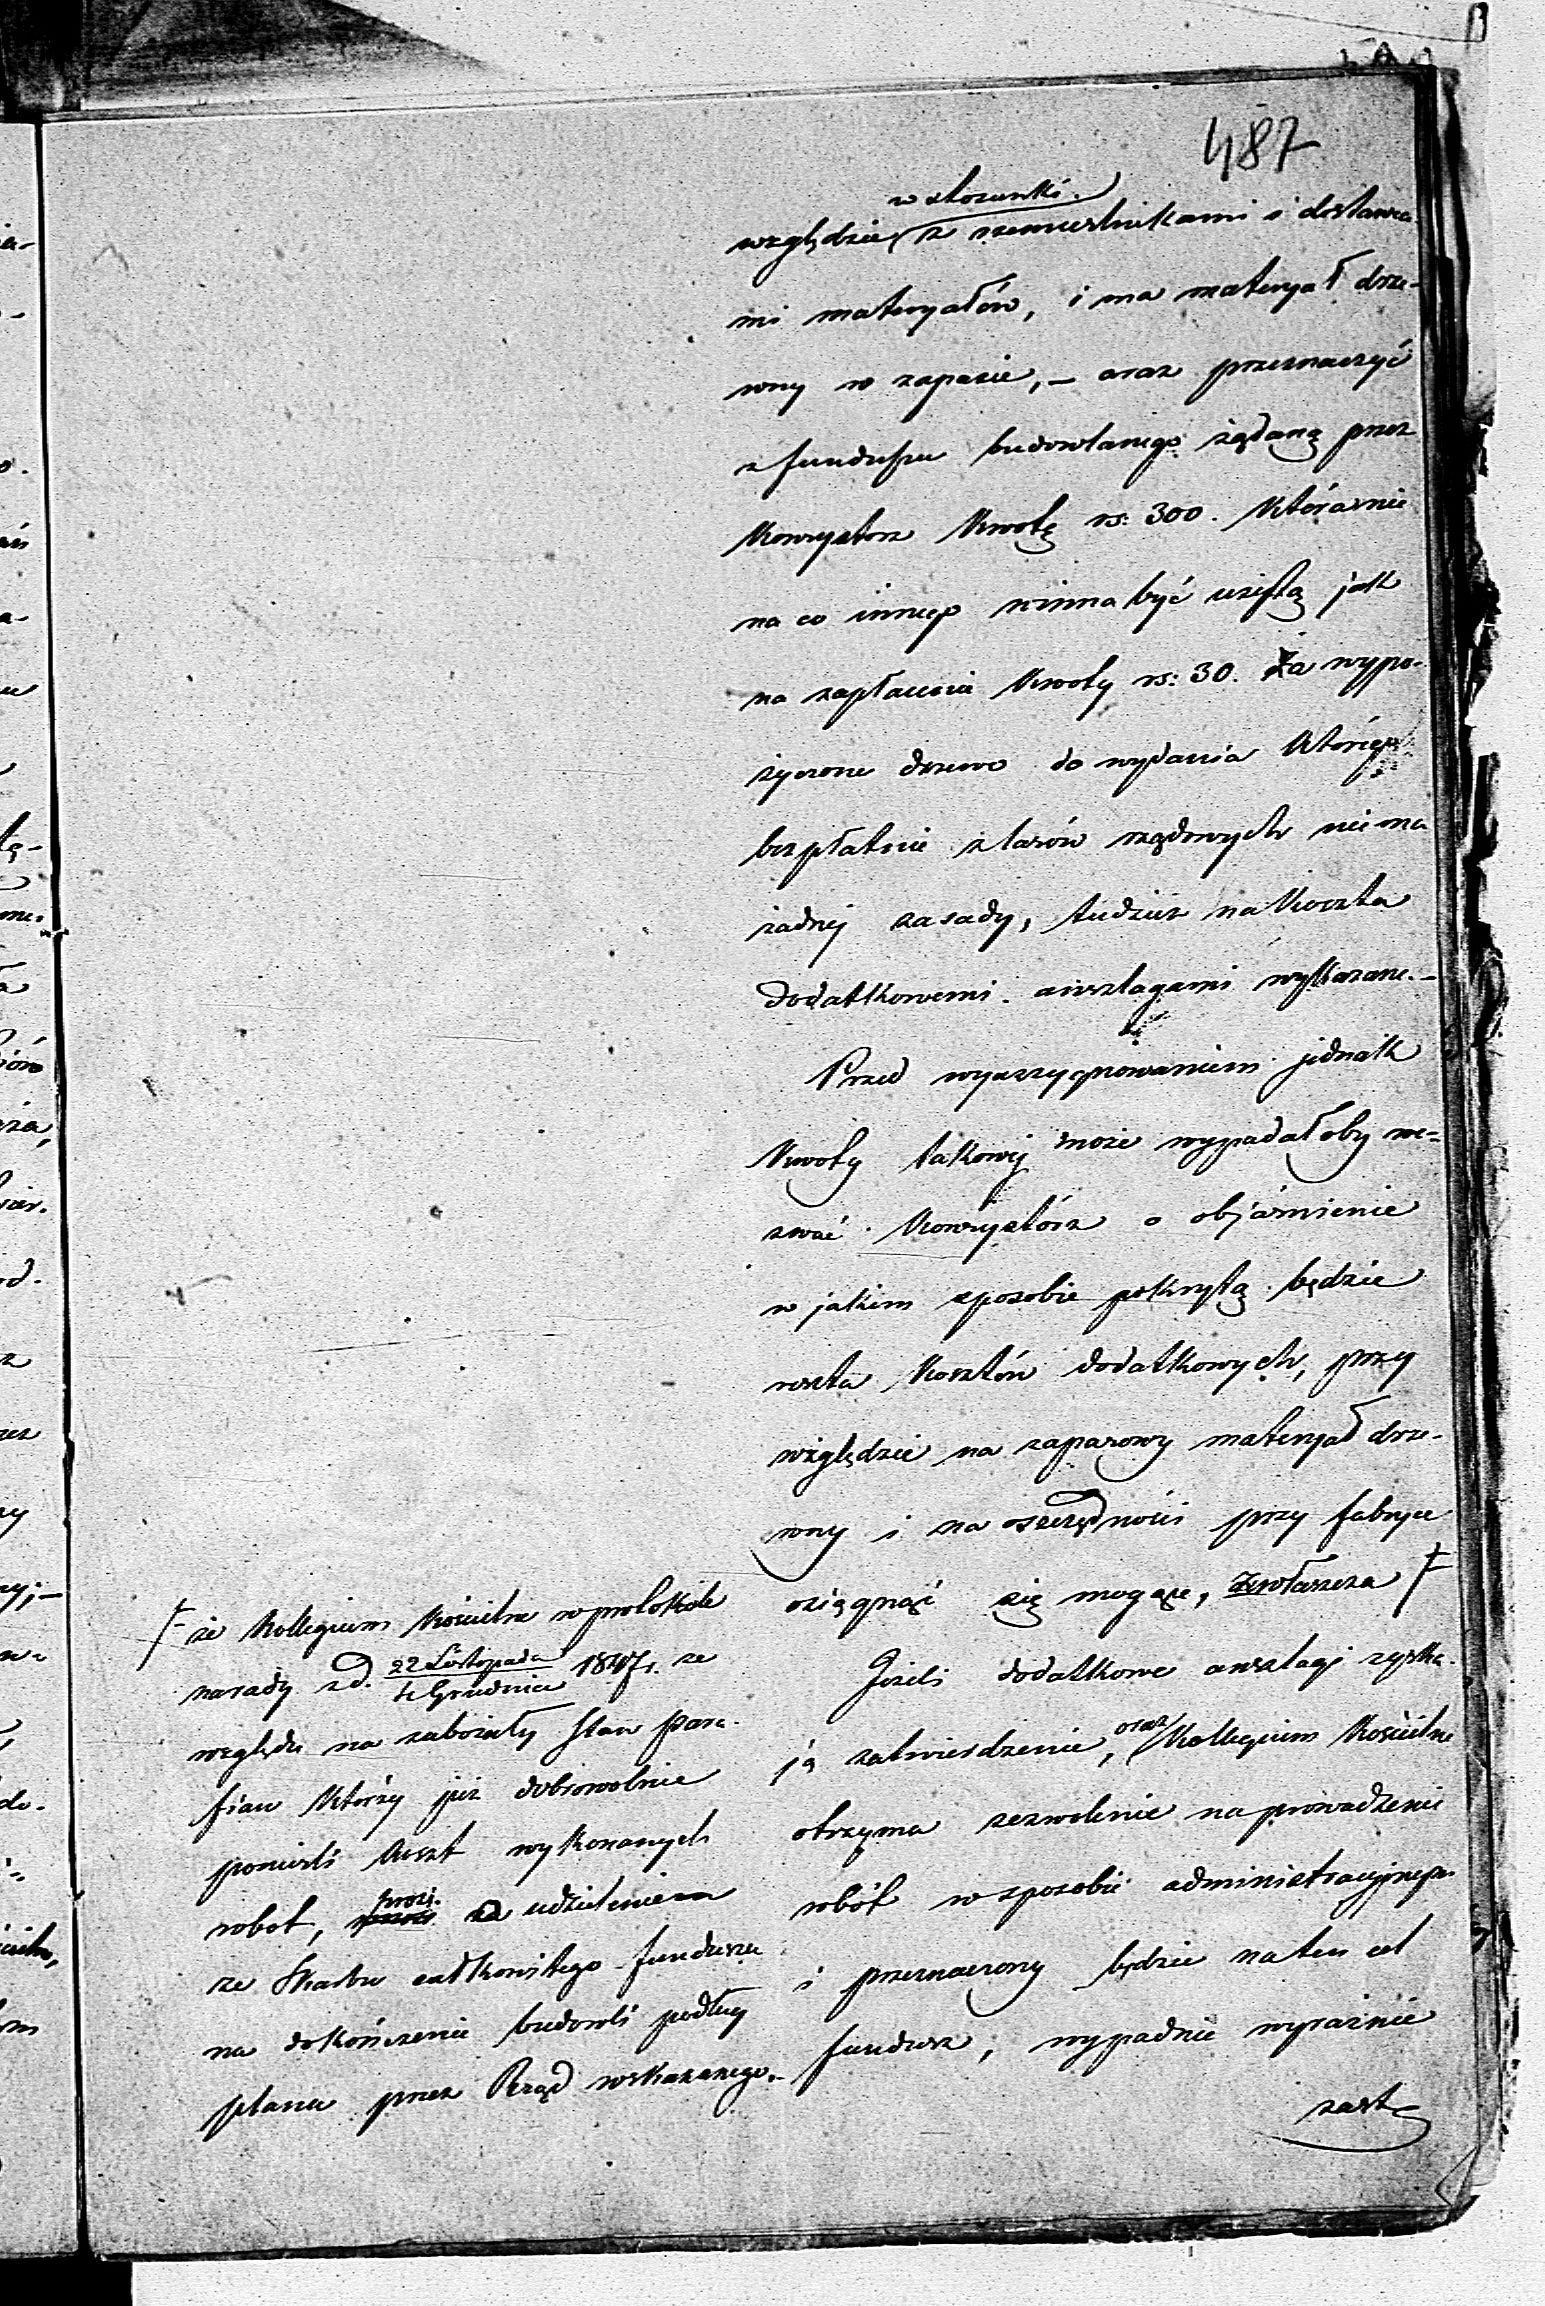 487
w stosunki.
względzie z rzemieslnikami i dostawca-
mi materyałów, i ma materyał drze-
wny w zapasie, – oraz przeznaczyć
z funduszu budowlanego żądaną przez
Konsystorz Kwotę rs: 300. Która nie
na co innego winna być użyta jak
na zapłacenie Kwoty rs: 30. Za wypo-
życzone drzewo do wydania Którego
bezpłatnie z lasów rządowych nie ma
żadnej zasady, tudzież na Koszta
dodatkowemi anszlagami wykazane. –
Przed wyassygnowaniem jednak
Kwoty takowej może wypadałoby we-
zwać Konsystorz o objaśnienie
w jakim sposobie pokrytą będzie
reszta Kosztów dodatkowych, przy
względzie na zapasowy materyał drze-
wny i na oszczędności przy fabryce
osiągnąć się mogące, zwłaszcza
Jeżeli dodatkowe anszlagi zyska-
ją zatwierdzenie, oraz Kollegium Kościelne
otrzyma zezwolenie na prowadzenie
robót w sposobie administracyjnym
i przeznaczony będzie na ten cel
fundusz, wypadnie wyraźnie
zast
że Kollegium Kościelne w protokole
narady z d. 22 Listopada
4 Grudnia 1847 r. ze
względu na zubożały stan para-
fian Którzy już dobrowolnie
ponieśli Koszt wykonanych
robot, prosi o udzielenie
ze Skarbu całkowitego funduszu
na dokończenie budowli podług
planu przez Rząd wskazanego. –